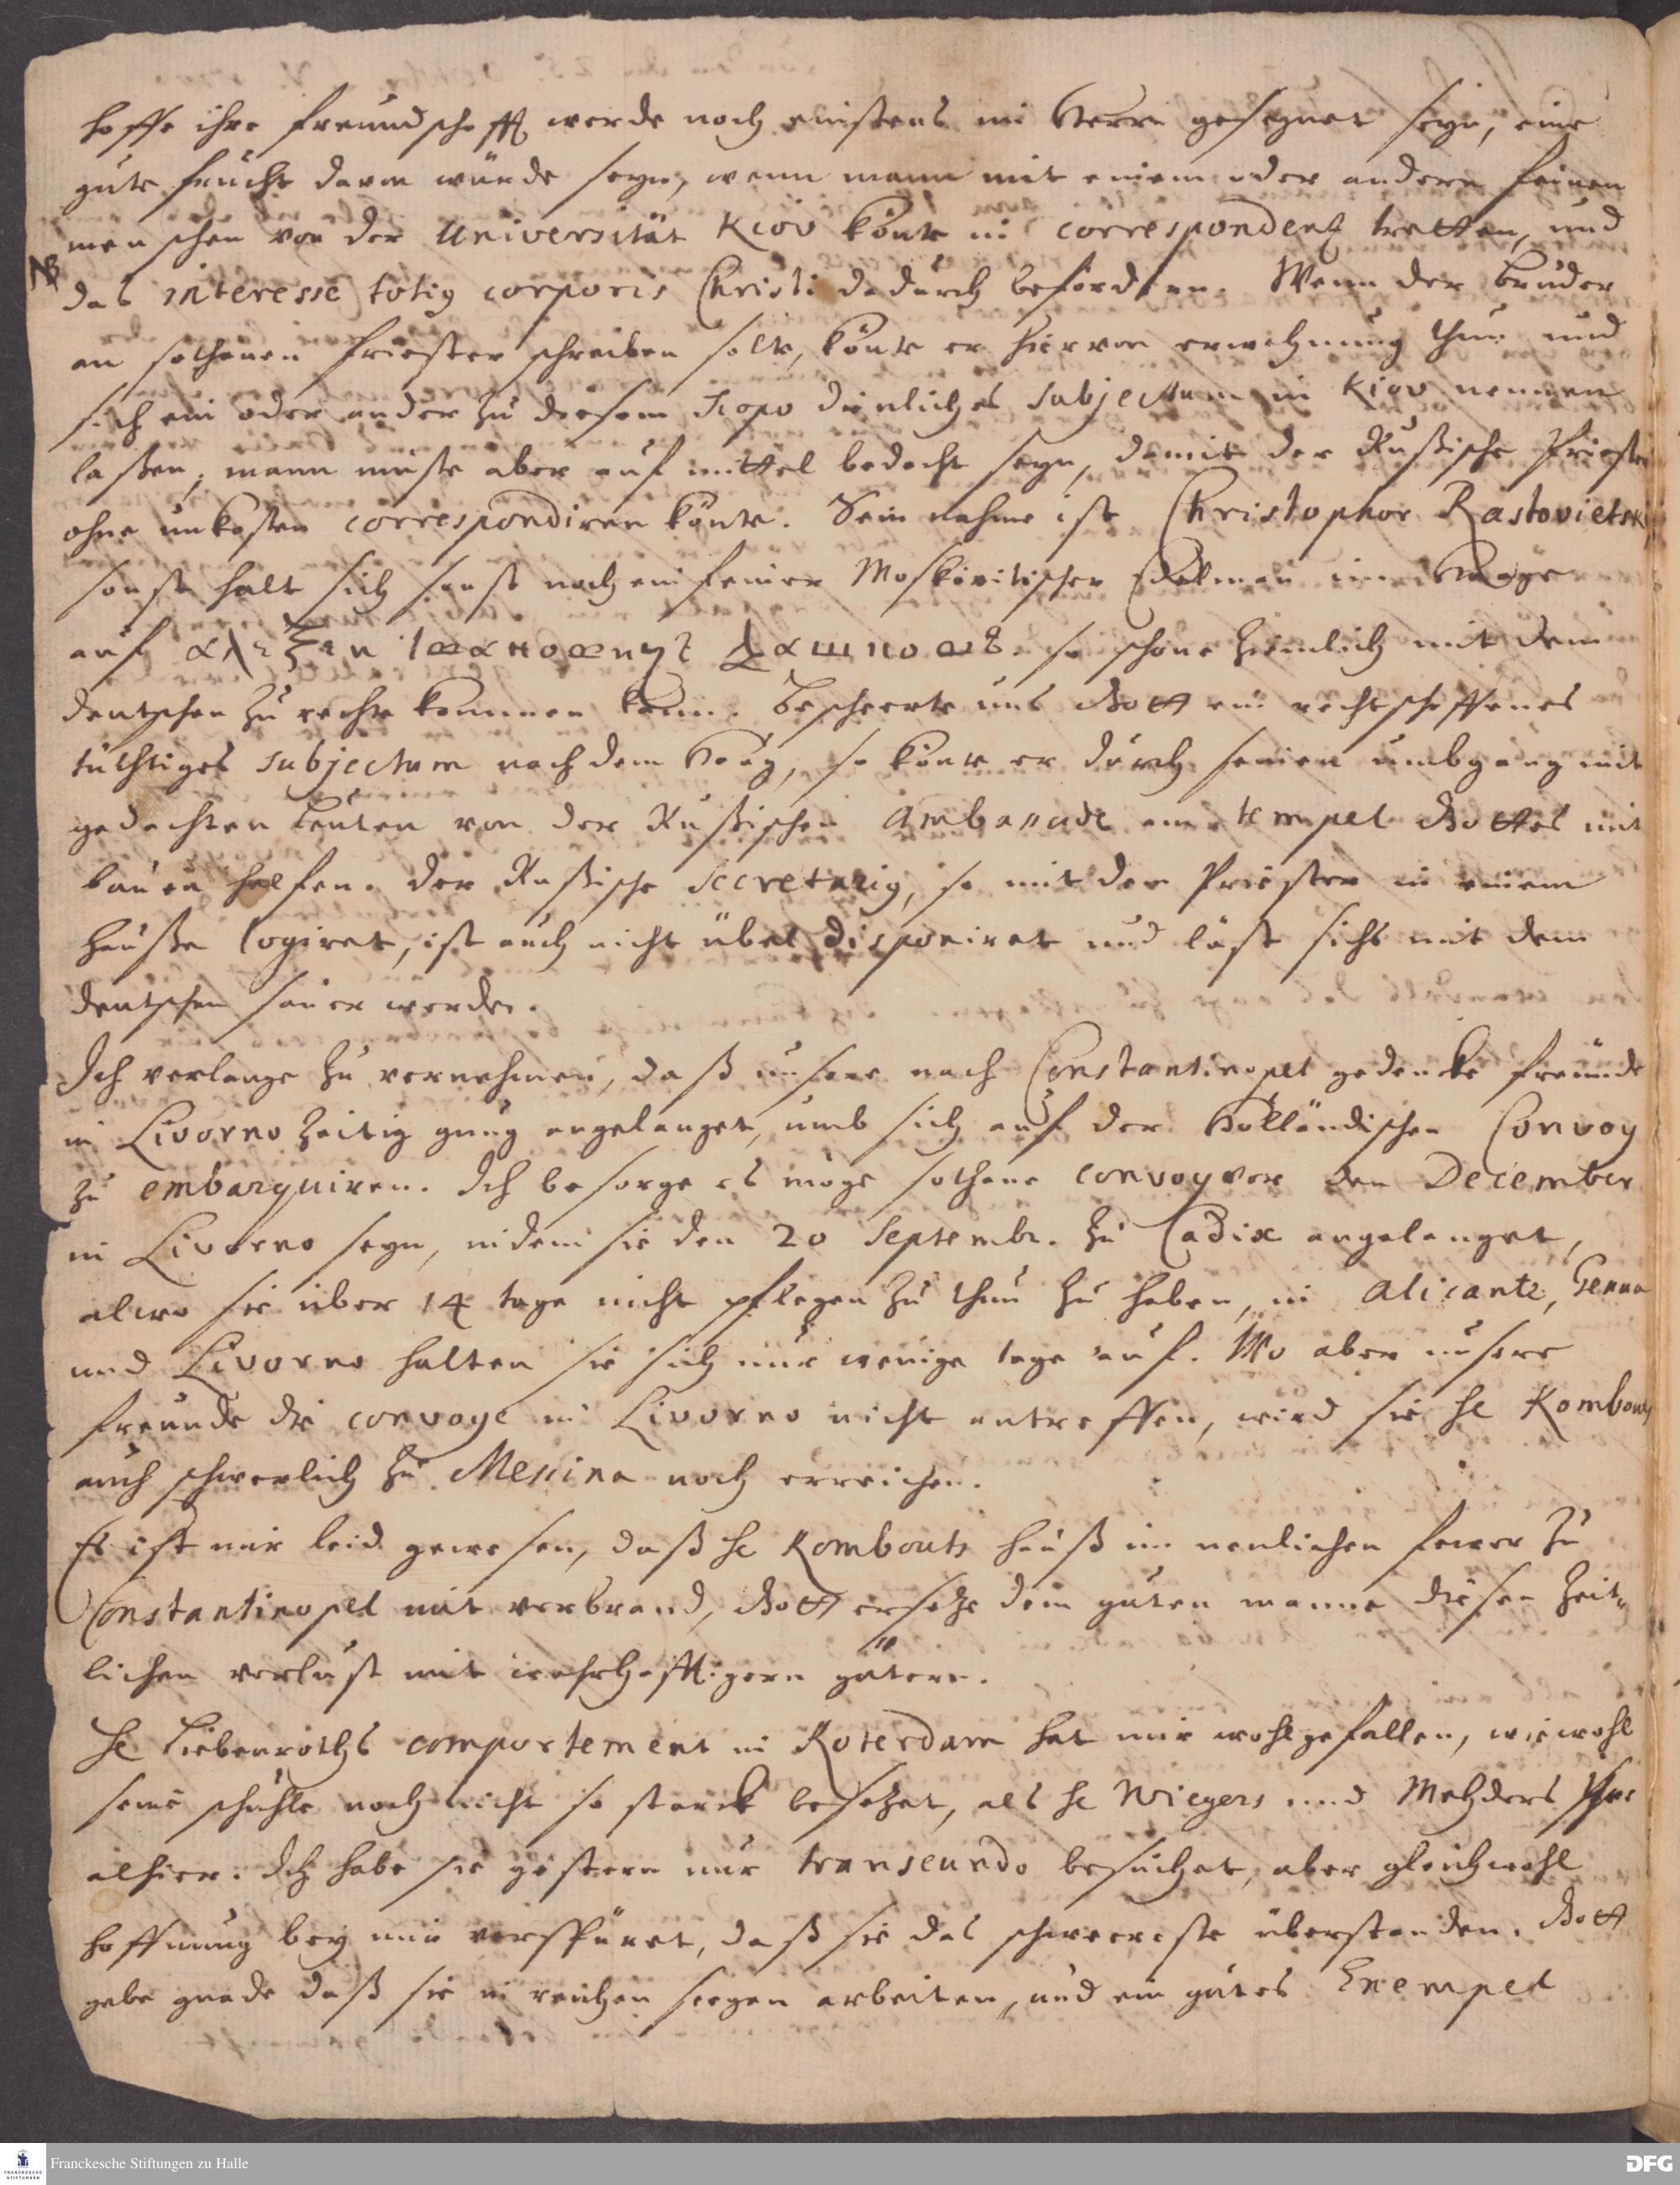 hoffe ihre freundschafft werde noch einstens im Herrn gesegnet seyn, eine
gute frucht davon würde seyn, wenn mann mit einem oder andern feinen
menschen von der Universität Kiov könte in correspondentz tretten, und
NB
das interesse totiꝰ corporis Christi dadurch befördern. Wenn der bruder
an sothanen Priester schreiben solte, könte er hiervon erwehnung thun und
sich ein oder ander zu diesem scopo dienliches subjectum in Kiov nennen
laßen, mann müste aber auf mittel bedacht seyn, damit der Rußische Priester
ohne unkosten correspondiren könte. Sein nahme ist Christophor Rastovietski
sonst halt sich sonst noch ein feiner Moskovitischer Edelman im Haage
auf so schone ziemlich mit dem
deutschen zu recht kommen kann. Bescheerte uns Gott ein rechtschaffenes
tüchtiges subjectum nach dem Haag, so könte er durch seinen umbgang mit
gedachten Leuten von der Rußischen Ambassade am tempel Gottes mit
bauen helfen. Der Rußische Secretariꝰ, so mit dem Priester in einem
Hauße logiret, ist auch nicht übel disponiret und läst sichs mit dem
deutschen sauer werden.
Ich verlange zu vernehmen, daß unsere nach Constantinopel gedenckte freunde
in Livorno zeitig gnug angelanget, umb sich auf der Holländischen Convoy
zu embarquiren. Ich besorge es möge sothane convoy vor dem December
in Livorno seyn, indem sie den 20 Septembr. zu Cadix angelanget,
alwo sie über 14 tage nicht pflegen zu thun zu haben, in Alicante, Genua
und Livorno halten sie sich nur wenige tage auf. Wo aber unsere
freunde die convoye in Livorno nicht antreffen, wird sie He Rombouts
auch schwerlich zu Messina noch erreichen.
Es ist mir leid gewesen, daß He Rombouts hauß im neulichen fewer zu
Constantinopel mit verbrand, Gott ersetze dem guten manne diesen zeit-
lichen verlust mit wahrhafftigern gütern.
He Liebenroths comportement in Roterdam hat mir wohlgefallen, wiewohl
seine schuhle noch nicht so starck besetzet, als He Wiegers und Mehders ihre
alhier. Ich habe sie gestern nur transeundo besuchet, aber gleichwohl
hoffnung bey mir verspüret, daß sie das schwereste überstanden. Gott
gebe gnade daß sie in reichen seegen arbeiten, und ein gutes Exempel
Franckesche Stiftungen zu Halle
DFG